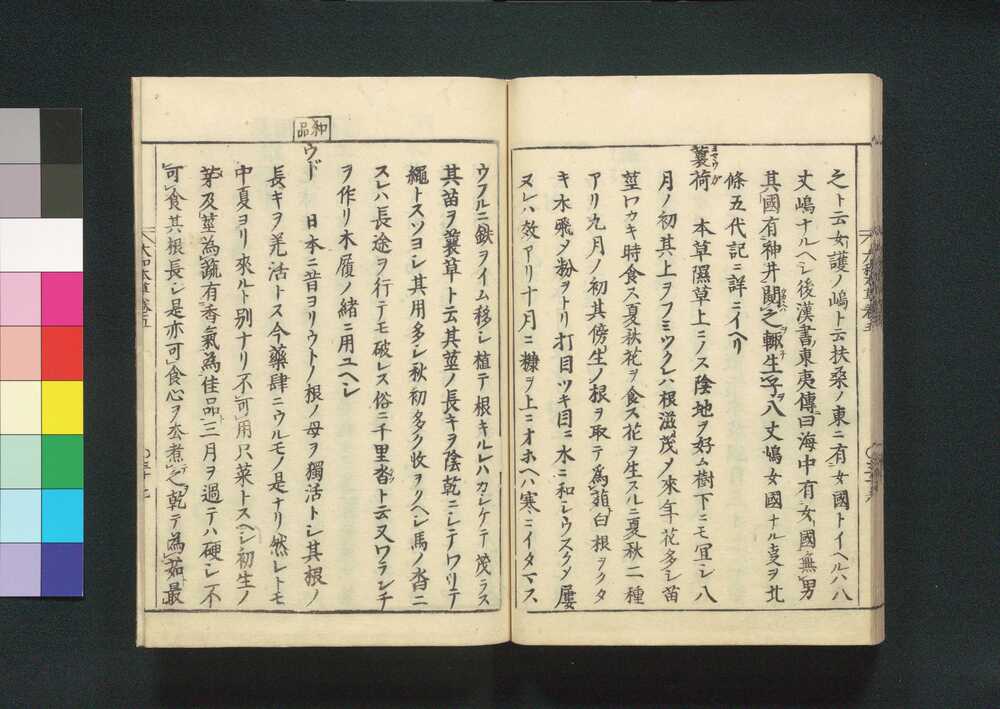 之ト云女護ノ嶋ト云扶桑ノ東ニ有女國トイヘルハ八
丈嶋ナルヘシ後漢書東夷傳曰海中有女國無男
其國有神井闚之輙生子ヲ八丈嶋女國ナル支ヲ北
條五代記ニ詳ニイヘリ
蘘荷 本草隰草上ニノス陰地ヲ好ム樹下ニモ冝シ八
月ノ初其上ヲフミツクレハ根滋茂メ來年花多シ苗
莖ワカキ時食ス夏秋花ヲ食ス花ヲ生スルニ夏秋二種
アリ九月ノ初其傍生ノ根ヲ取テ為葅白根ヲクタ
キ水飛メ粉ヲトリ打目ツキ目ニ水ニ和シウスクメ屢
ヌレハ效アリ十月ニ糠ヲ上ニオホヘハ寒ニイタマス
ウフルニ鉄ヲイム移シ植テ根キルレハカレケテ茂ラス
其苗ヲ蘘草ト云其莖ノ長キヲ陰乾ニシテワリテ
繩トスツヨシ其用多シ秋初多ク收ヲクヘシ馬ノ沓ニ
スレハ長途ヲ行テモ破レス俗ニ千里沓ト云又ワランチ
ヲ作リ木履ノ緒ニ用ユヘシ
和品
ウド 日本ニ昔ヨリウトノ根ノ母ヲ獨活トシ其根ノ
長キヲ羌活トス今藥肆ニウルモノ是ナリ然レトモ
中夏ヨリ來ルト别ナリ不可用只菜トスヘシ初生ノ
芽及莖為蔬有香氣為佳品三月ヲ過テハ硬シ不
可食其根長シ是亦可食心ヲ厺煮之乾テ為茹最
大和本草卷五